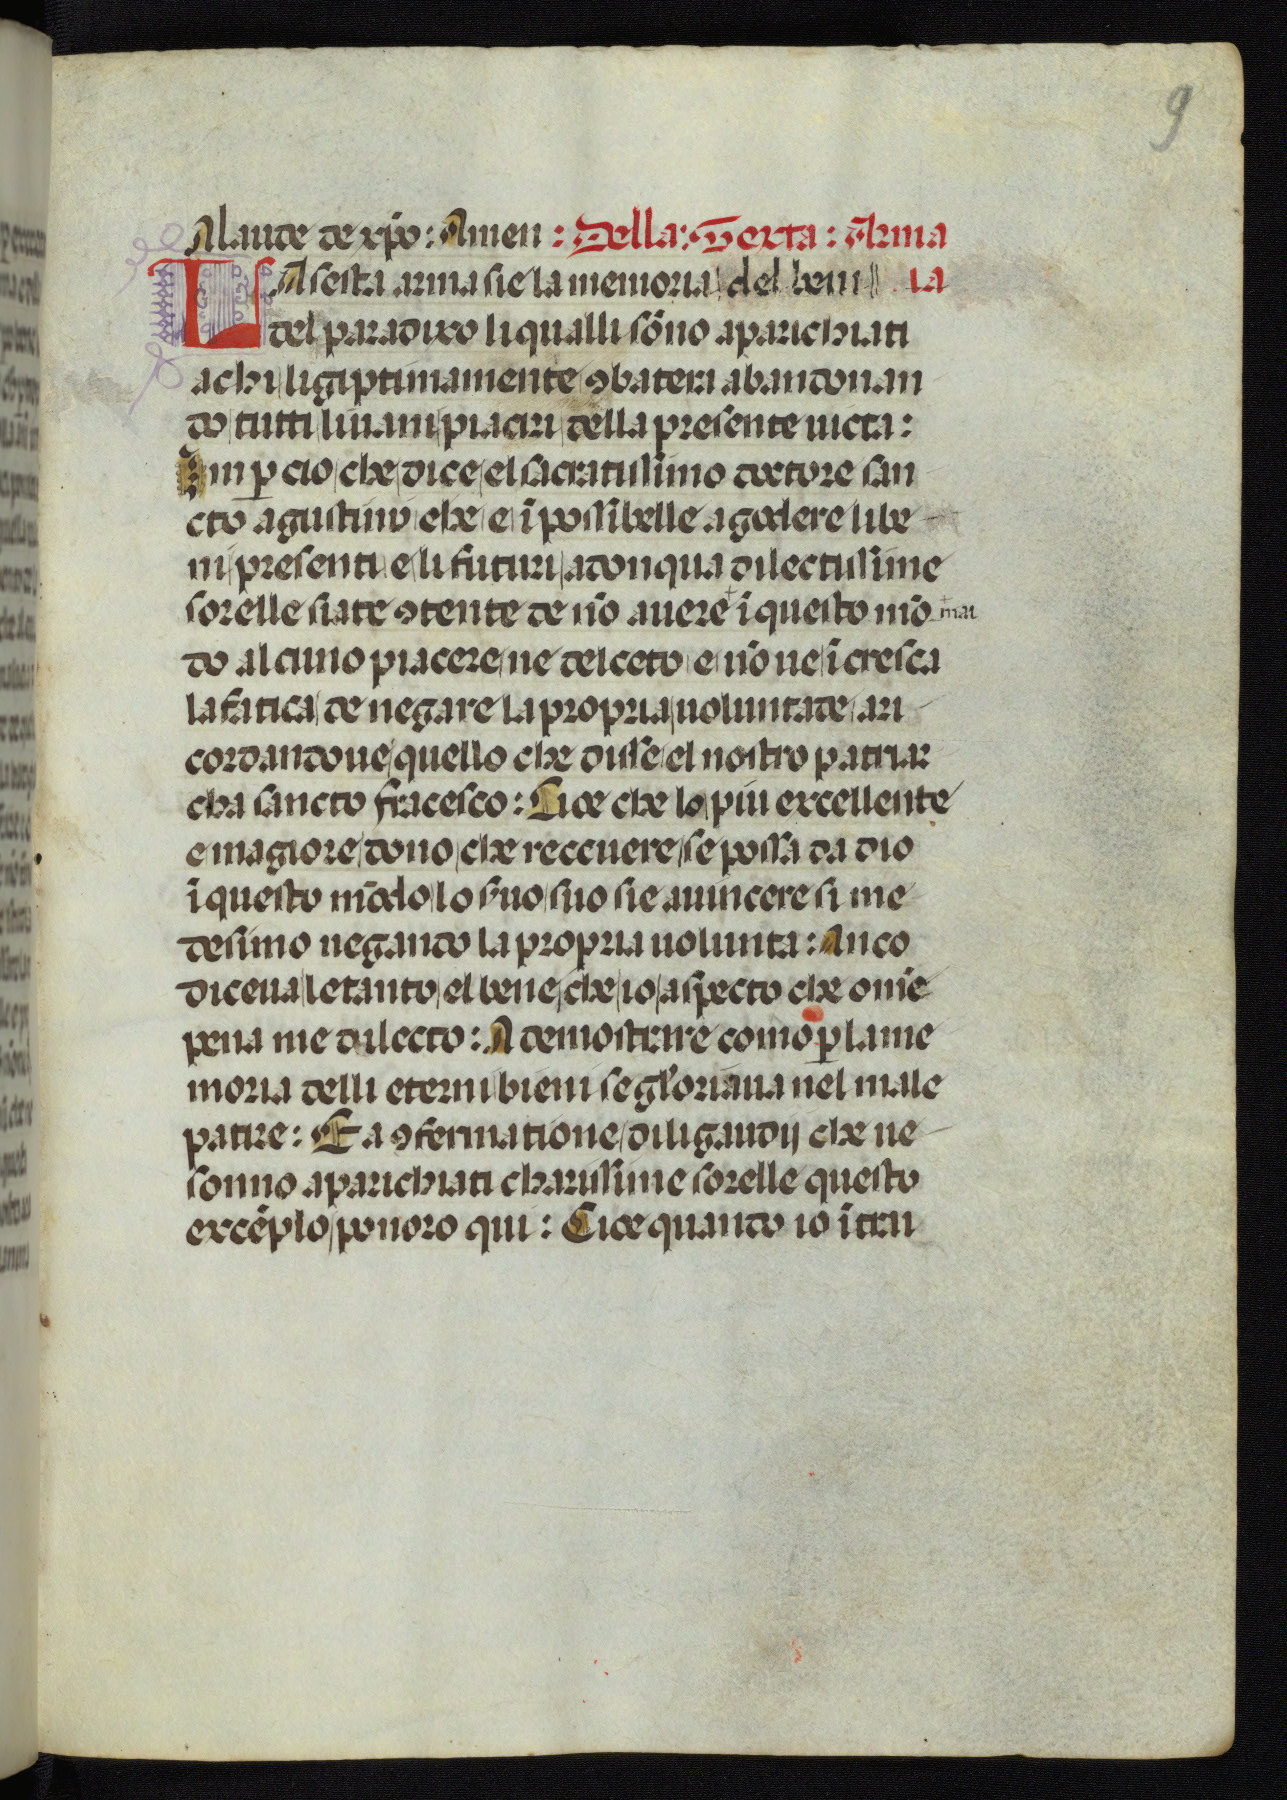 9
Alaude de xp̄o: Amen: Della: Sexta: Arma
LA sesta arma sie la memoria del beni la
del paradixo li qualli sōno aparichiati
achi ligiptimamente ꝯbateri abandonan
do tutti li uani piaciri della presente uicta:
Imꝑcio che dice el sacratissimo doctore san
cto agustino che e īpossibelle a godere li be
ni presenti e li futuri adonqua dilectissime
sorelle siate ꝯtente de nō auere ī questo mō mai
do alcuno piacere ne delceto e nō ue īcresca
la fatica de negare la propria uoluntade ari
cordandoue quello che disse el nostro patriar
cha sancto fracesco: Cioe che lo piu excellente
e magiore dono che receuere se possa da dio
ī questo mōdo lo s̄uo suo sie auincere si me
desimo negando la propria uolunta: Anco
diceua le tanto el bene che io aspecto che onīe
pena me dilecto: A demostrare como ꝑ la me
moria delli eterni bieni se gloriaua nel male
patire: E a ꝯfermatione dili gaudij che ne
sonno aparichiati charissime sorelle questo
excēplo ponoro qui: Cioe quando io ītrai